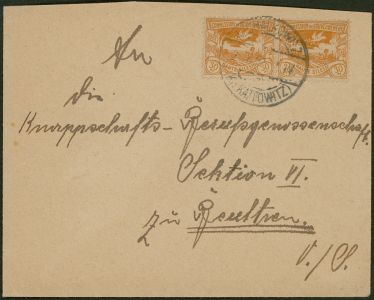 An
die
Knappschafts-Berufsgenossenschaft.
Sektion VI.
zu Beuthen.
O./S.
30 30
(Kr. KATTOWITZ)